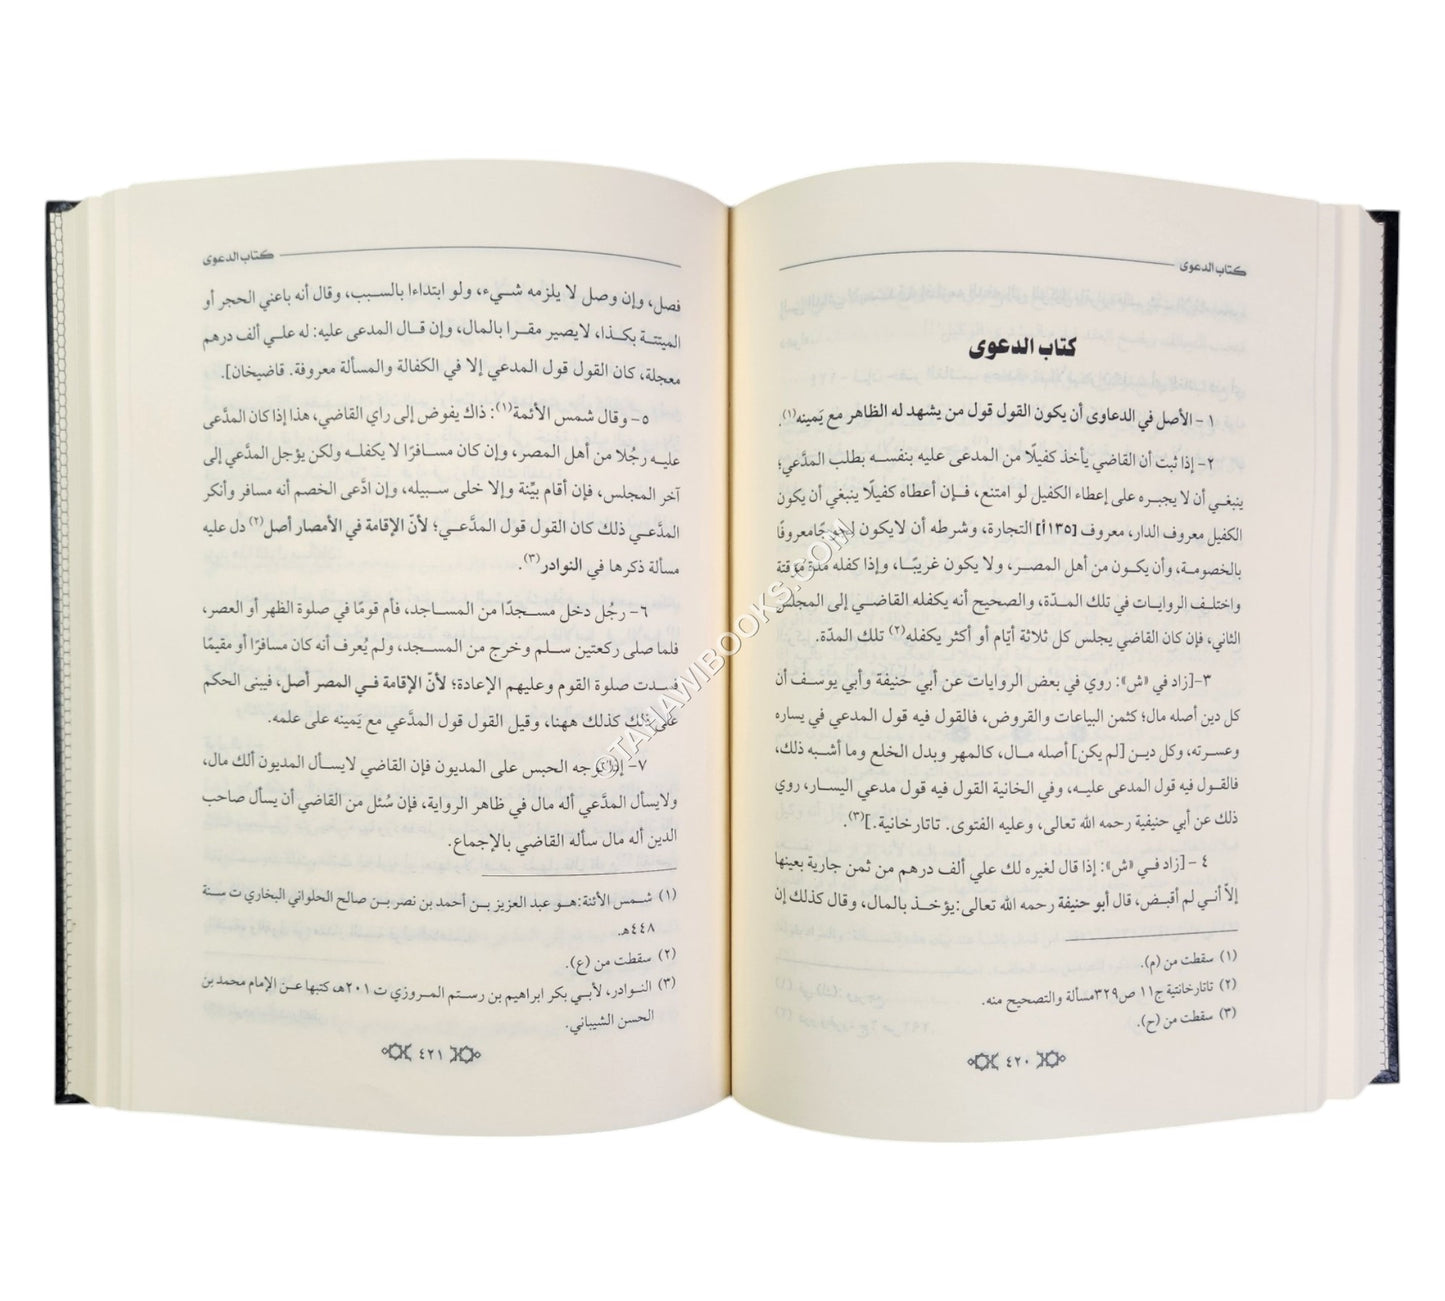 كتاب الدعوى
كتاب الدعوى
١- الأصل في الدعاوى أن يكون القول قول من يشهد له الظاهر مع يَمينه(١).
٢- إذا ثبت أن القاضي يأخذ كفيلًا من المدعى عليه بنفسه بطلب المدَّعي؛
ينبغي أن لا يجبره على إعطاء الكفيل لو امتنع، فإن أعطاه كفيلًا ينبغي أن يكون
الكفيل معروف الدار، معروف [١٣٥أ] التجارة، وشرطه أن لايكون لجوجًامعروفًا
بالخصومة، وأن يكون من أهل المصر، ولا يكون غريبًا، وإذا كفله مدّة مؤقتة
واختلف الروايات في تلك المدّة، والصحيح أنه يكفله القاضي إلى المجلس
الثاني، فإن كان القاضي يجلس كل ثلاثة أيّام أو أكثر يكفله(٢) تلك المدّة.
٣-[زاد في «ش»: روي في بعض الروايات عن أبي حنيفة وأبي يوسف أن
كل دين أصله مال؛ كثمن البياعات والقروض، فالقول فيه قول المدعي في يساره
وعسرته، وكل دين [لم يكن] أصله مال، كالمهر وبدل الخلع وما أشبه ذلك،
فالقول قول المدعى عليه، وفي الخانية القول فيه قول مدعي اليسار، روي
ذلك عن أبي حنيفية رحمه الله تعالى، وعليه الفتوى. تاتارخانية.](٣).
٤ -[زاد في «ش»: إذا قال لغيره لك علي ألف درهم من ثمن جارية بعينها
إلاّ أني لم أقبض، قال أبو حنيفة رحمه الله تعالى:يؤخذ بالمال، وقال كذلك إن
(١) سقطت من (م).
(٢) تاتارخانتية ج١١ ص٣٢٩مسألة والتصحيح منه.
(٣) سقطت من (ح).
٤٢٠
كتاب الدعوى
فصل، وإن وصل لا يلزمه شيء، ولو ابتداءا بالسبب، وقال أنه باعني الحجر أو
الميتتة بكذا، لايصير مقرا بالمال، وإن قال المدعى عليه: له علي ألف درهم
معجلة، كان القول قول المدعي إلا في الكفالة والمسألة معروفة. قاضيخان].
٥- وقال شمس الأئمة(١): ذاك يفوض إلى راي القاضي، هذا إذا كان المدَّعى
عليه رجُلا من أهل المصر، وإن كان مسافرًا لا يكفله ولكن يؤجل المدَّعي إلى
آخر المجلس، فإن أقام بيِّنة وإلا خلى سبيله، وإن ادَّعى الخصم أنه مسافر وأنكر
المدَّعي ذلك كان القول قول المدَّعي؛ لأنّ الإقامة في الأمصار أصل(٢) دل عليه
مسألة ذكرها في النوادر(٣).
٦- رجُل دخل مسجدًا من المساجد، فأم قومًا في صلوة الظهر أو العصر،
فلما صلى ركعتين سلم وخرج من المسجد، ولم يُعرف أنه كان مسافرًا أو مقيمًا
فسدت صلوة القوم وعليهم الإعادة؛ لأنّ الإقامة في المصر أصل، فيبنى الحكم
على ذلك كذلك ههنا، وقيل القول قول المدَّعي مع يَمينه على علمه.
٧- إذا توجه الحبس على المديون فإن القاضي لايسأل المديون ألك مال،
ولايسأل المدَّعي أله مال في ظاهر الرواية، فإن سُئل من القاضي أن يسأل صاحب
الدين أله مال سأله القاضي بالإجماع.
(١) شمس الأئنة:هو عبد العزيز بن أحمد بن نصر بن صالح الحلواني البخاري ت سنة
٤٤٨هـ.
(٢) سقطت من (ع).
(٣) النوادر، لأبي بكر ابراهيم بن رستم المروزي ت ٢٠١هـ، كتبها عن الإمام محمد بن
الحسن الشيباني.
٤٢١
©TAHAWIBOOKS.COM